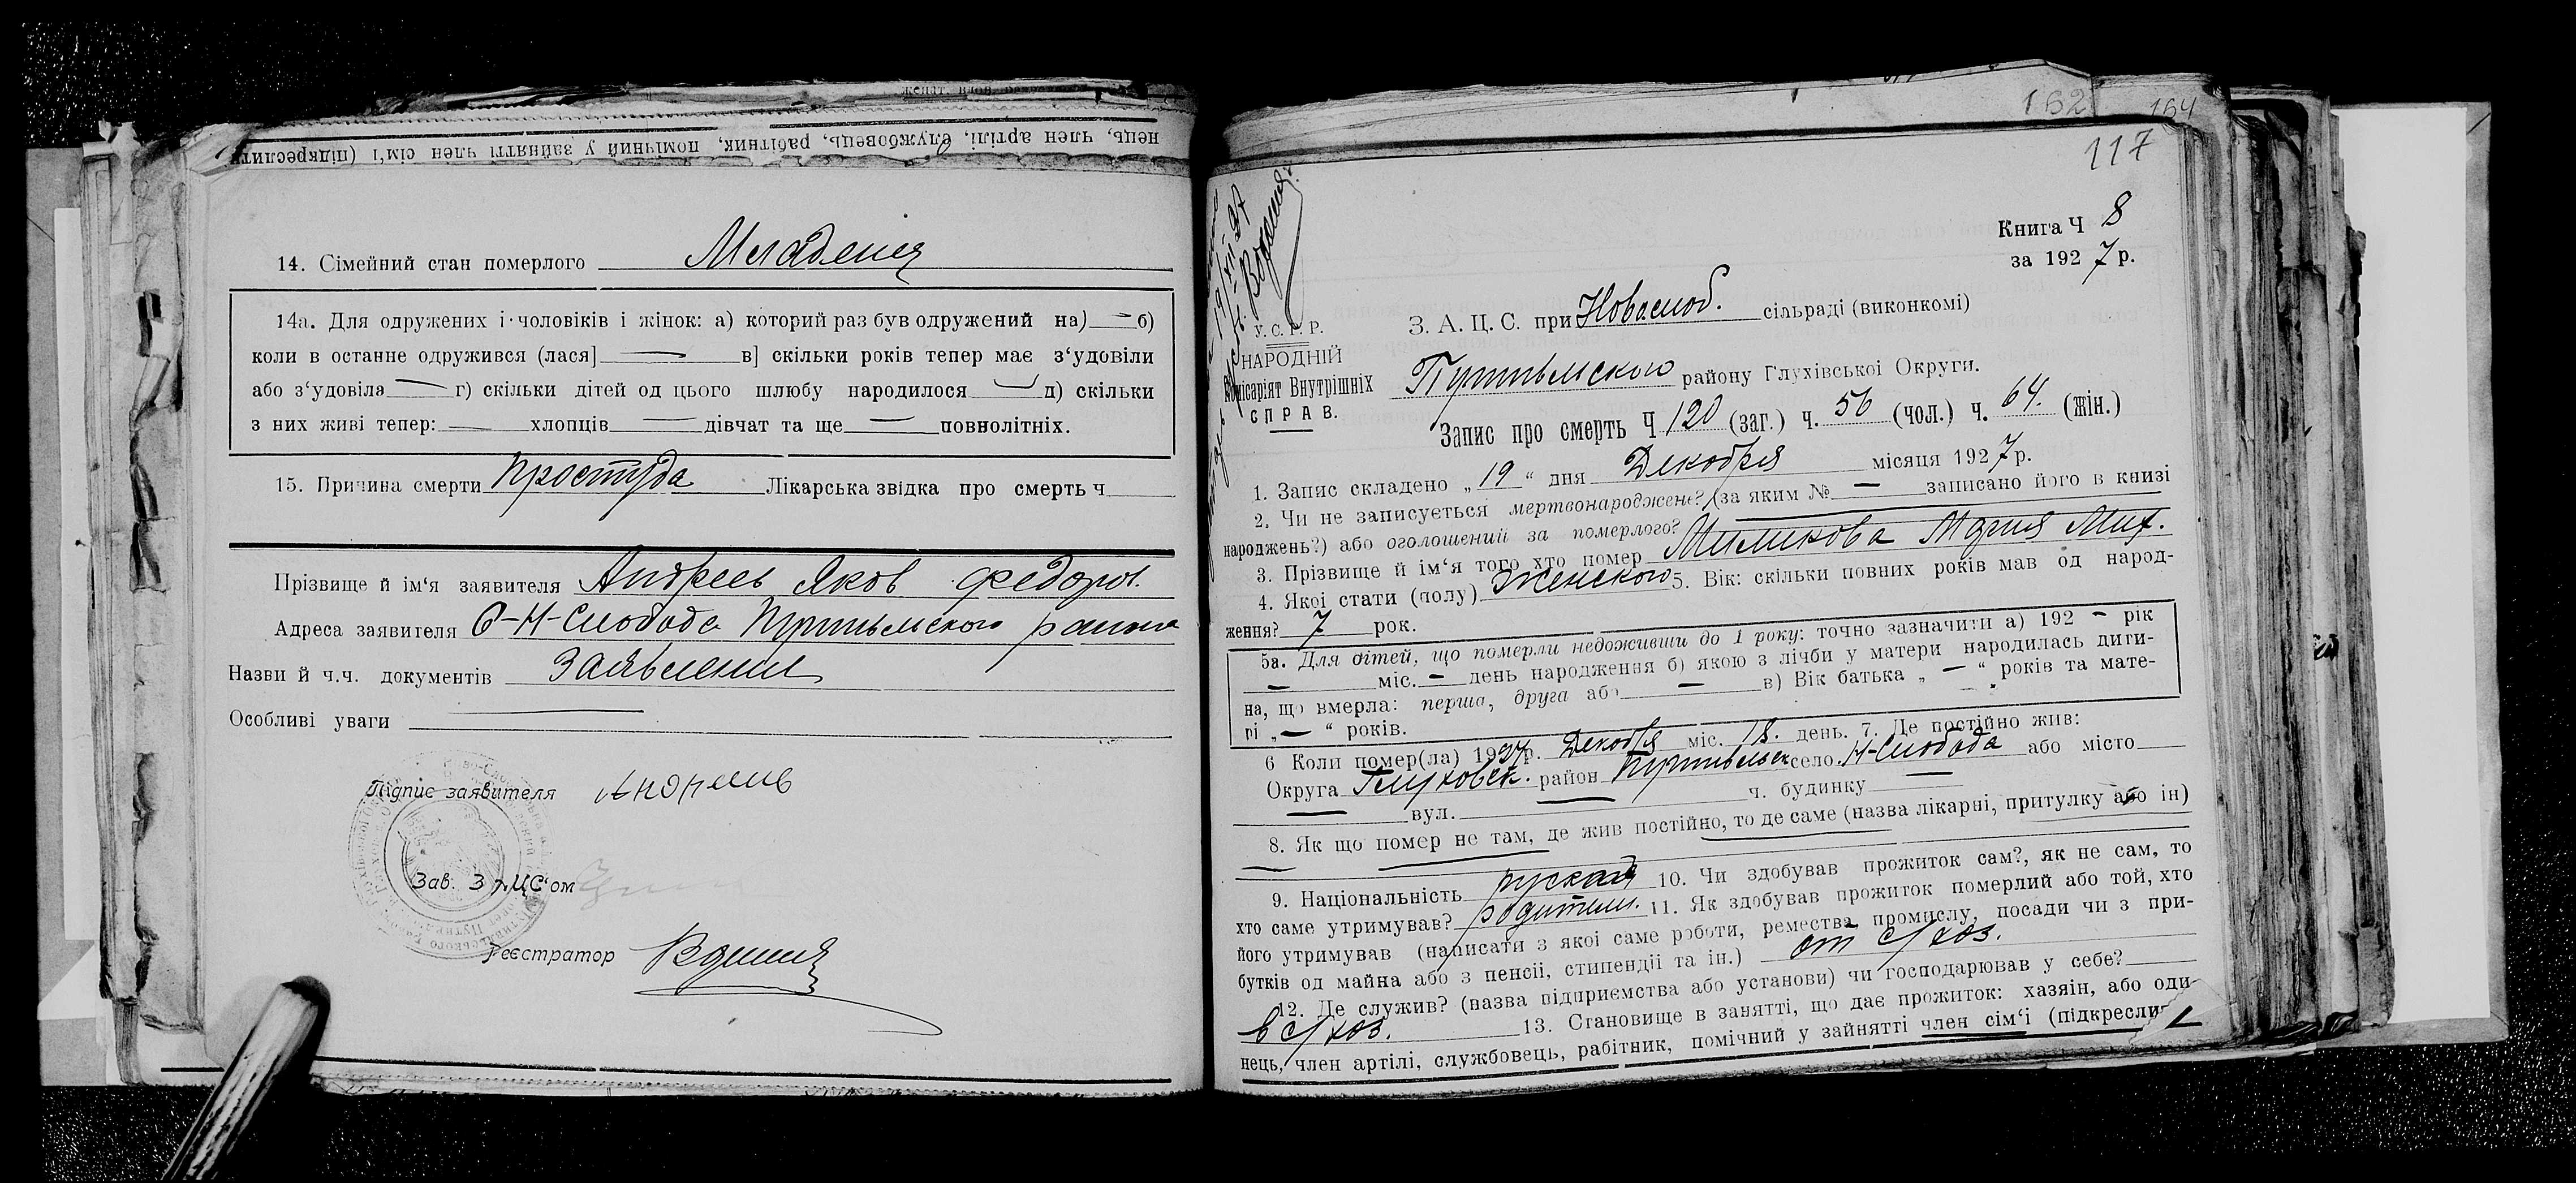 нець, член артілі, службовець, рабітник, помічний у зайнятті член сім'ї (підкреслить
14. Сімейний стан померлого Младенец
14а. Для одружених і чоловіків і жінок: а) которий раз був одружений на) — б)
коли в останнє одружився (лася] — в] скільки років тепер має з‘удовіли
або з‘удовіла — г) скільки дітей од цього шлюбу народилося — д) скільки
з них живі тепер: — хлопців — дівчат та ще — повнолітніх.
15. Причина смерти простуда Лікарська звідка про смерть ч
Прізвище й ім‘я заявителя Андреев Яков Федоров.
Адреса заявителя С-Н-Слобода Путивльского района
Назви й ч.ч. документів Заявление
Особливі уваги —
Підпис заявителя Андреев
Зав. ЗАЦС‘ом
Реєстратор
162
164
117
Книга Ч 8
за 1927 р.
У.С.Р.Р.
НАРОДНІЙ
Комісаріят Внутрішніх
СПРАВ.
З. А. Ц. С. при Новослоб. сільраді (виконкомі)
Путивльского району Глухівської Округи.
Запис про смерть Ч 120 (заг.) ч. 56 (чол.) ч. 64. (жін.)
1. Запис складено „19“ дня Декабря місяця 1927 р.
2. Чи не записується мертвонароджене? (за яким № — записано його в книзі
народжень?) або оголошений за померлого?
3. Прізвище й ім‘я того хто помер Миликова Мария Мих.
4. Якої стати (полу) Женского 5. Вік: скільки повних років мав од народ-
ження? 7 рок.
5а. Для дітей, що померли недоживши до 1 року: точно зазначити а) 192 — рік
— міс. — день народження б) якою з лічби у матери народилась дити-
на, що вмерла: перша, друга або — в) Вік батька „ — “ років та мате-
рі „ — “ років.
6 Коли помер(ла) 1927 р. Декабря міс. 18. день. 7. Де постійно жив:
Округа Глуховск. район Путивльск село Н-Слобода або місто
— вул. — ч. будинку —
8. Як що помер не там, де жив постійно, то де саме (назва лікарні, притулку або ін)
9. Національність руская 10. Чи здобував прожиток сам?, як не сам, то
хто саме утримував? родители. 11. Як здобував прожиток померлий або той, хто
його утримував (написати з якої саме роботи, ремества, промислу, посади чи з при-
бутків од майна або з пенсії, стипендії та ін.) от с/хоз.
12. Де служив? (назва підприємства або установи) чи господарював у себе?
в с/хоз. 13. Становище в занятті, що дає прожиток: хазяїн, або оди-
нець, член артілі, службовець, рабітник, помічний у зайнятті член сім‘ї (підкреслить